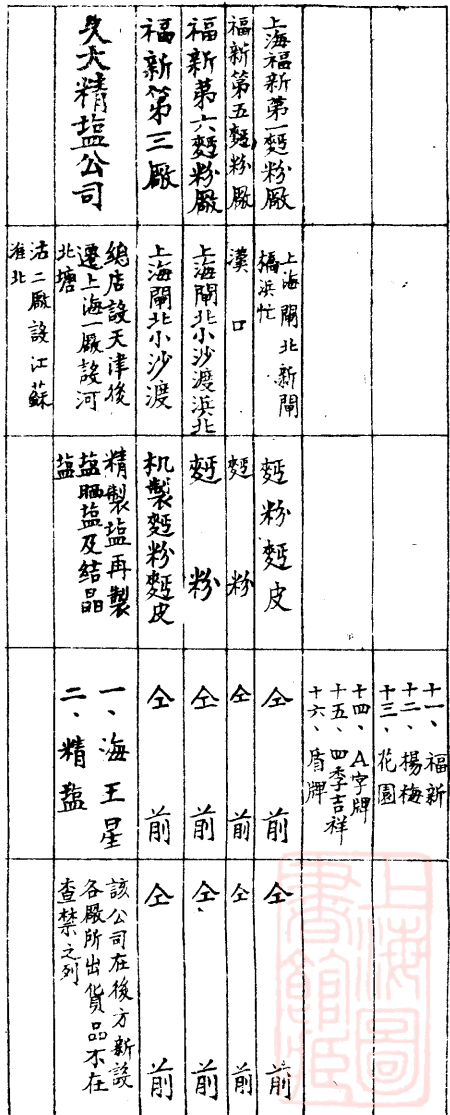 十一、福新
十二、楊梅
十三、花園
十四、A字牌
十五、四季吉祥
十六、盾牌
上海福新第一麵粉廠
上海閘北新閘
橋浜忙
麵粉麵皮
仝前
仝前
福新第五麵粉廠
漢口
麵粉
仝前
仝前
福新第六麵粉廠
上海閘北小沙渡浜北
麵粉
仝前
仝前
福新第三廠
上海閘北小沙渡
机製麵粉麵皮
仝前
仝前
久大精塩公司
總店設天津後
遷上海一廠設河
北塘
沽二廠設江蘇
淮北
精製塩再製
塩晒塩及结晶
塩
一、海王星
二、精盬
該公司在後方新設
各廠所出貨品不在
查禁之列
上海圖
書館藏